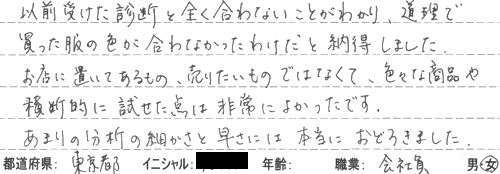 以前受けた診断と全く合わないことがわかり、道理で
買った服の色が合わなかったわけだと納得しました.
お店に置いてあるもの、売りたいものではなくて、色々な商品や
積極的に試せた点は非常によかったです.
あまりの分析の細かさと早さには本当におどろきました.
都道府県: 東京都 イニシャル: 年齢: 職業: 会社員 男・女